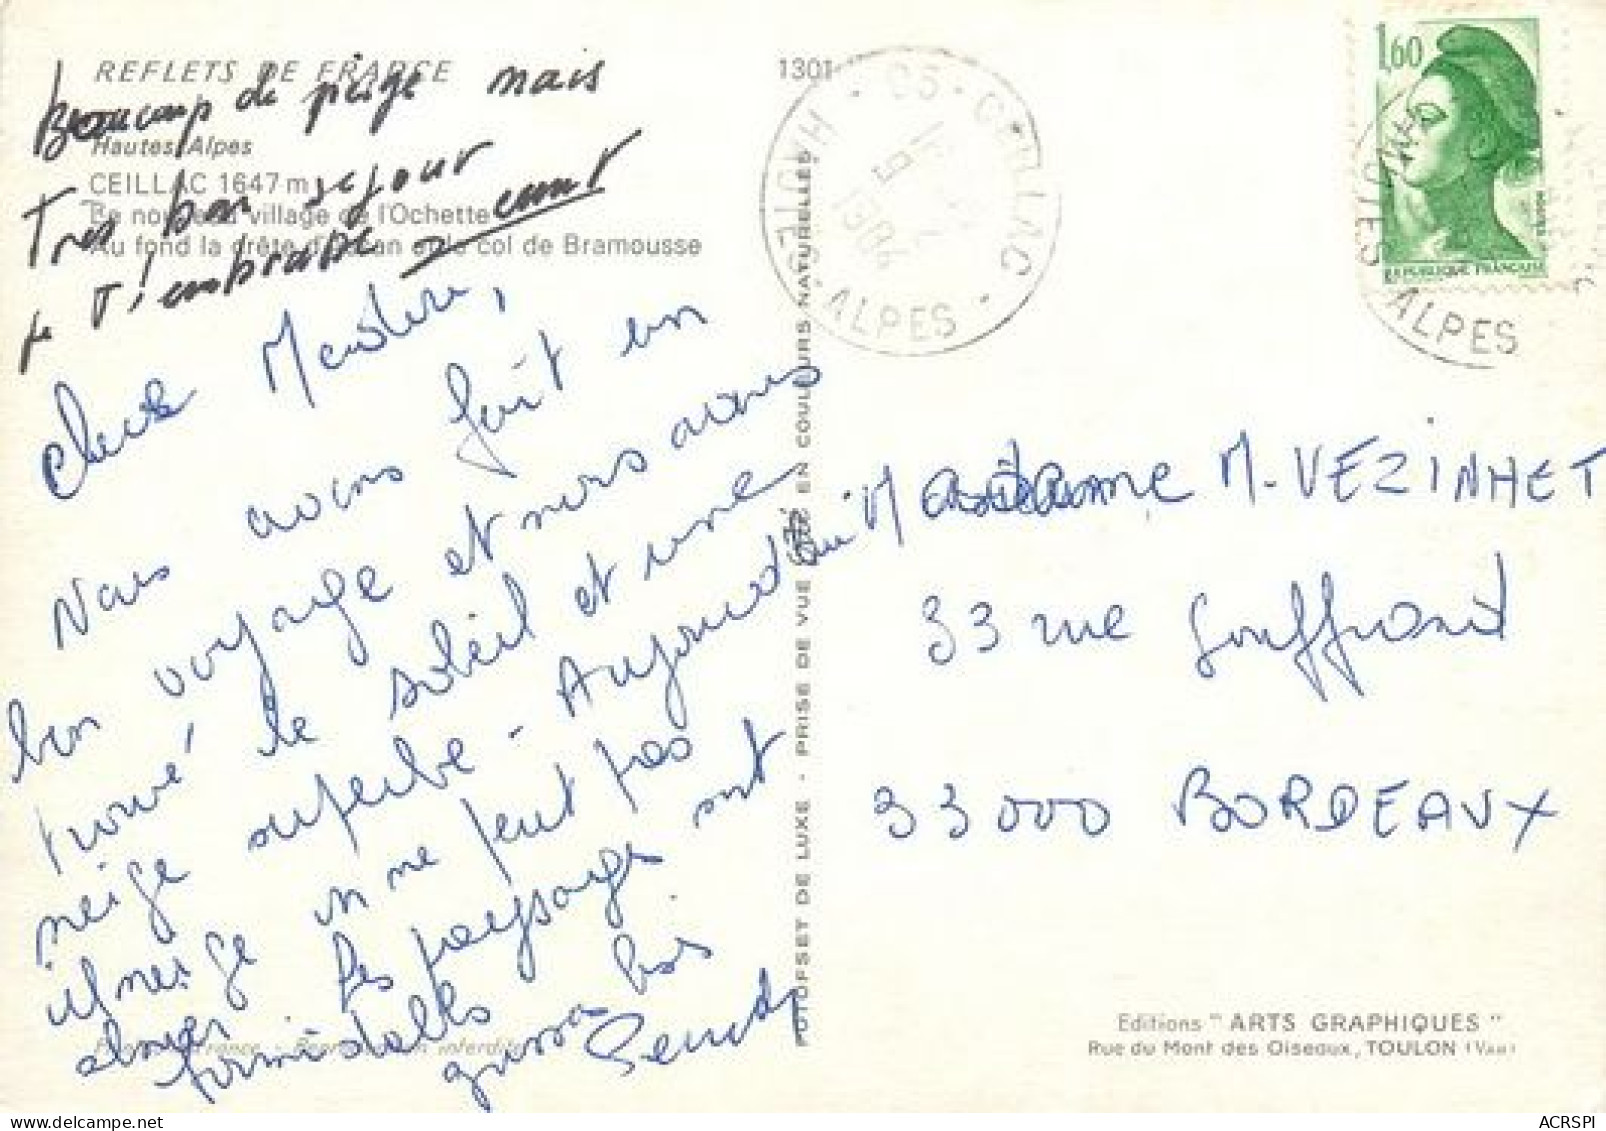 REFLETS DE FRANCE
Hautes Alpes
CEILLAC 1647 m
Le nouveau village de l'Ochette
Au fond la crête d'        an et le col de Bramousse
Beaucoup de neige mais
Très bon séjour
je t'embrasse
Chere
Nous avons fait un
bon voyage et nous avons
trouvé le soleil et une
neige superbe - Aujourd'hui
il neige on ne peut pas
skier les paysages sont
formidables
gross bis
1301
PHOTOFSET DE LUXE - PRISE DE VUE EN COULEURS NATURELLES
05 - CEILLAC
HAUTES - ALPES -
1984
1,60
REPUBLIQUE FRANÇAISE
HAUTES
ALPES
Madame M. VEZINHET
33 rue Gouffrand
33000 BORDEAUX
Editions "ARTS GRAPHIQUES"
Rue du Mont des Oiseaux, TOULON (VAR)
France - Reproduction interdite
ACRSPI